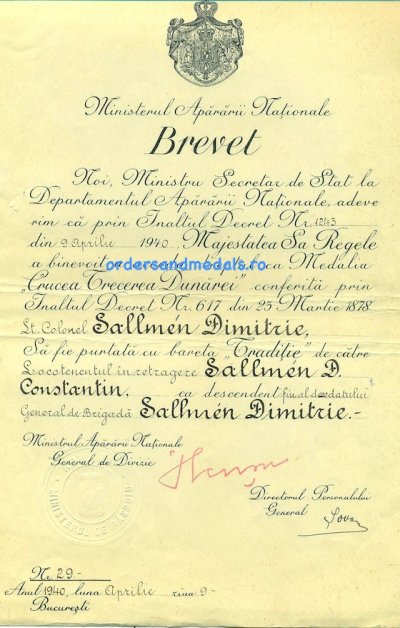 Ministerul Apărării Naționale
Brevet
Noi, Ministru Secretar de Stat la
Departamentul Apărării Naționale, adeve
rim că prin Înaltul Decret Nr. 1243
din 9 Aprilie 1940, Majestatea Sa Regele
a binevoit ca Medalia
ordersandmedals.ro
„Crucea Trecerea Dunărei” conferită prin
Înaltul Decret Nr. 617 din 23 Martie 1878
Lt. Colonel Sallmén Dimitrie,
Să fie purtată cu bareta „Tradiție” de către
Locotenentul în retragere Sallmén D.
Constantin, ca descendent fiu al
General de Brigadă Sallmén Dimitrie.-
Ministrul Apărării Naționale
General de Divizie
Directorul Personalului
General
Nr. 29.-
Anul 1940, luna Aprilie ziua 9-
București